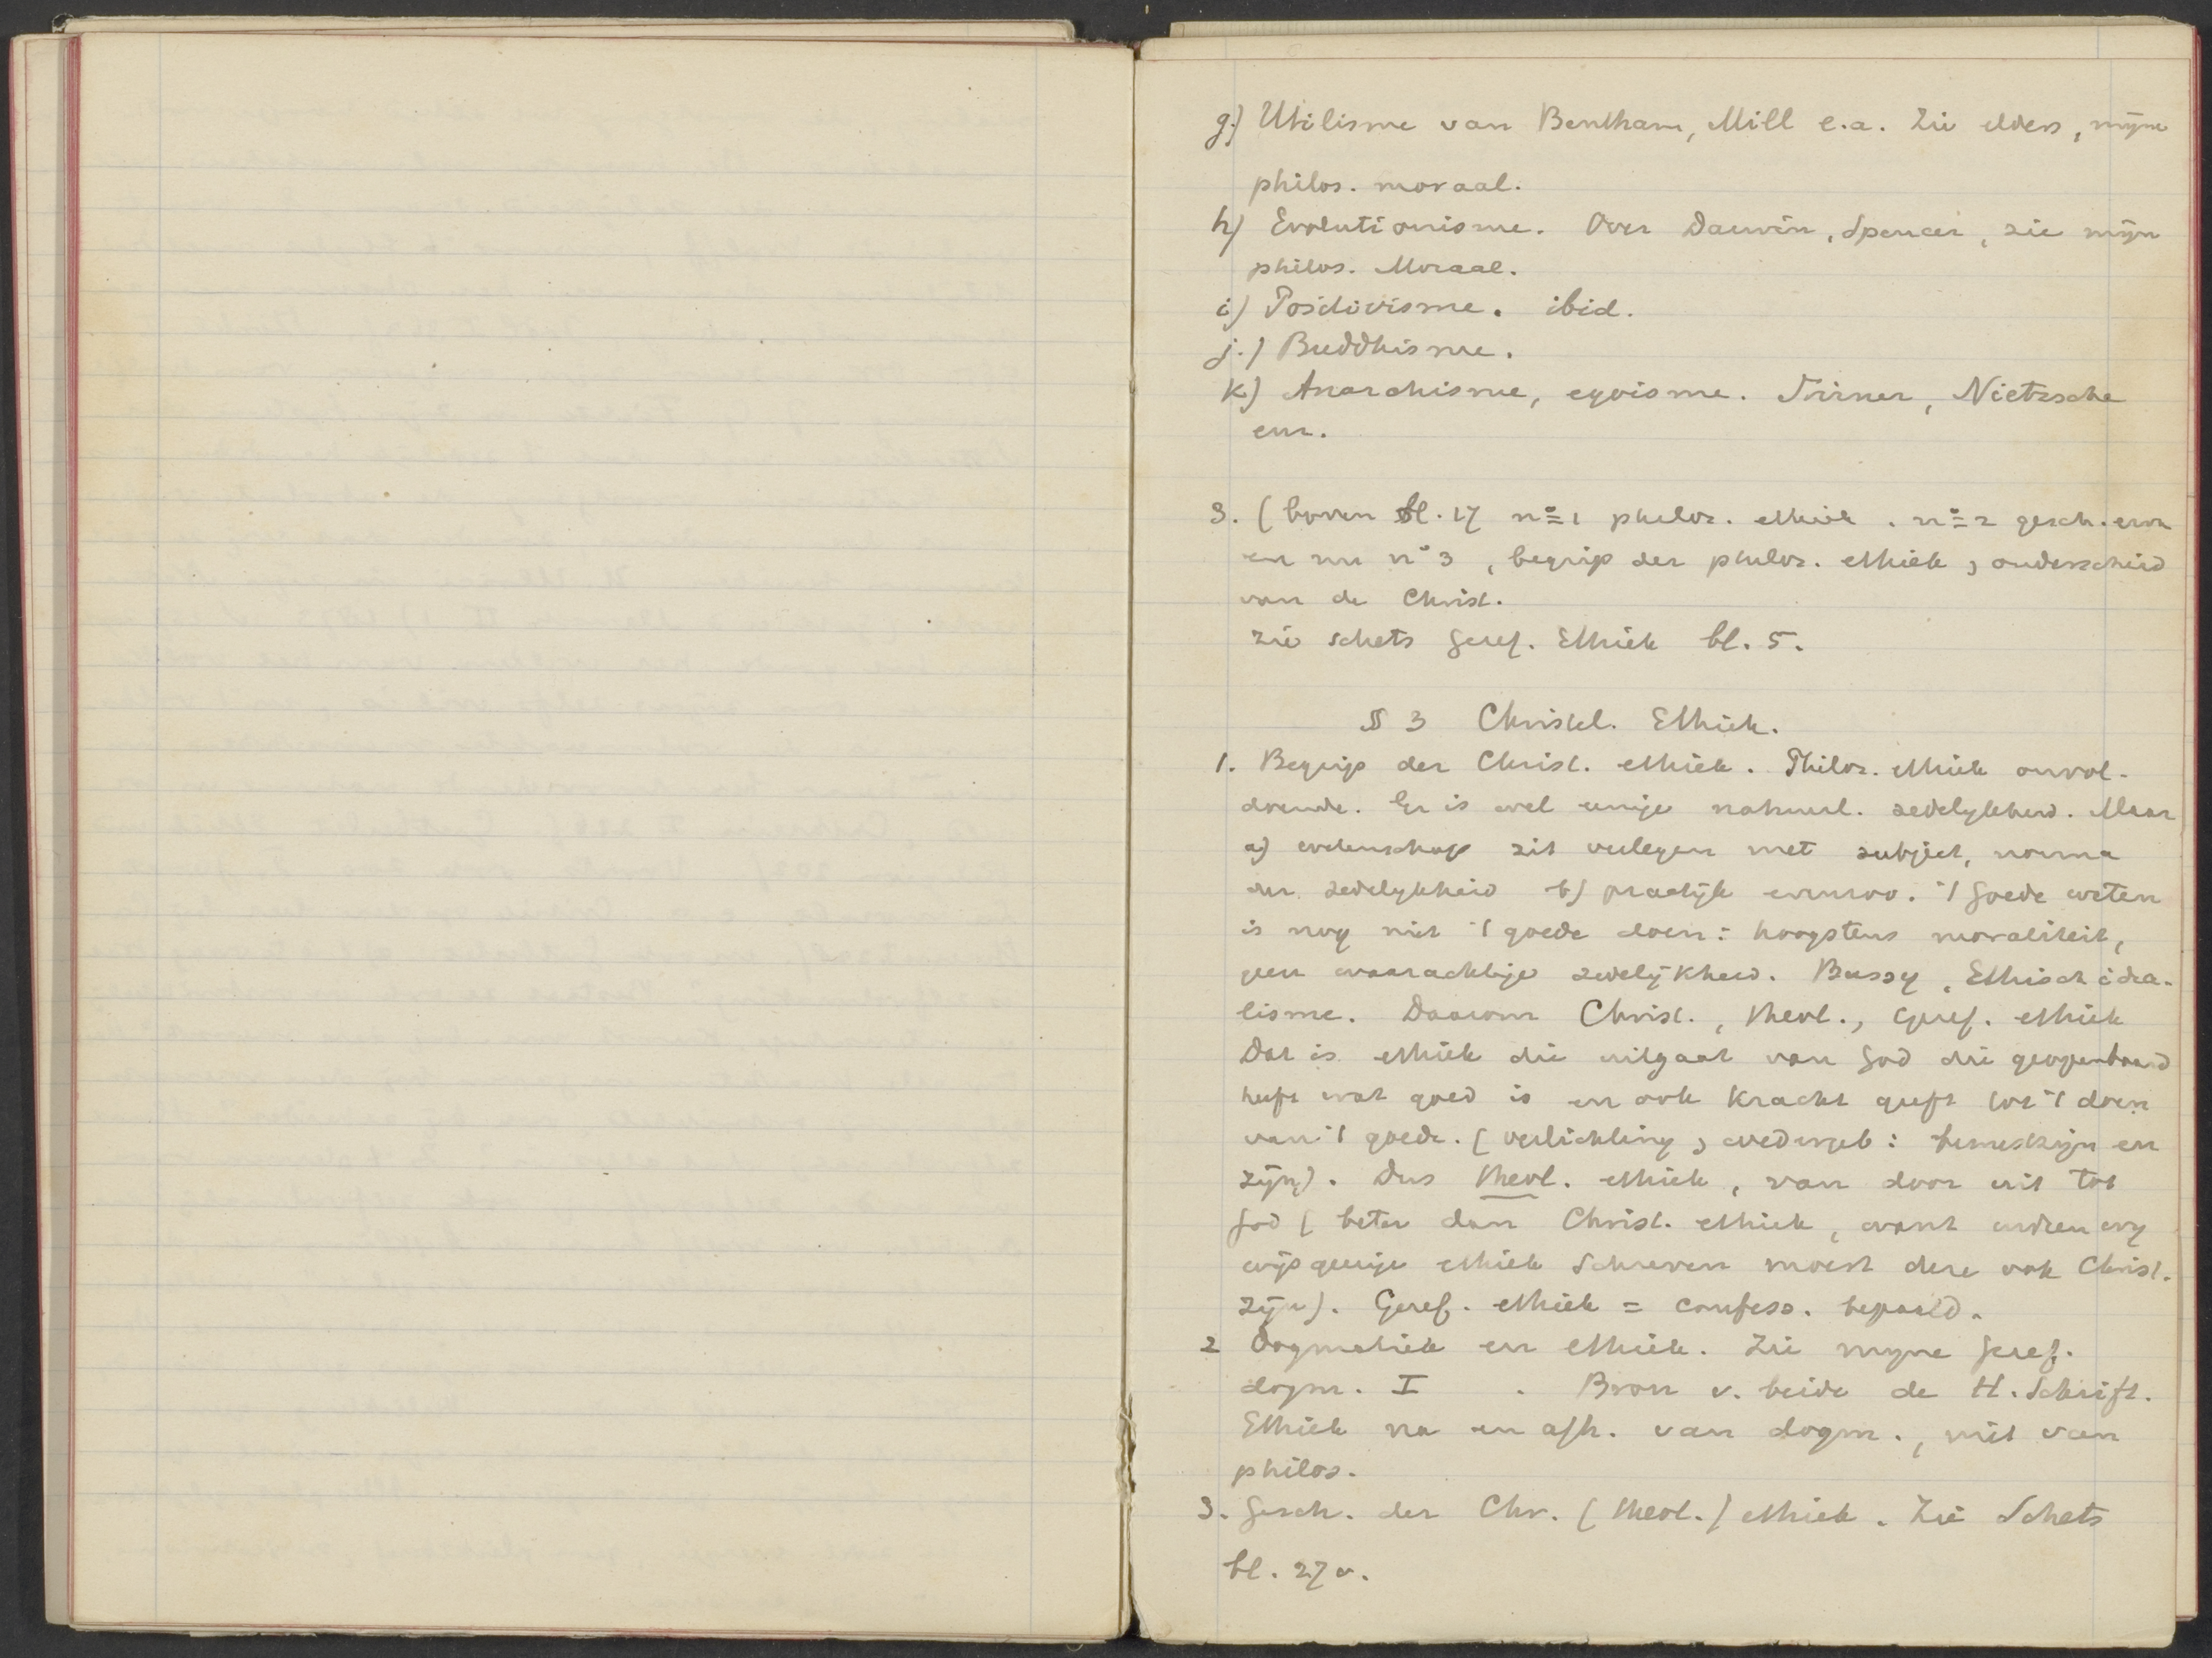 g.) Utilisme van Bentham, Mill e.a. Zie elders, mijne
philos. moraal.
h) Evolutionisme. Over Darwin, Spencer, zie mijn
philos. Moraal.
i) Positivisme. ibid.
j.) Buddhisme.
k) Anarchisme, egoisme. Stirner, Nietzsche
enz.
3. (boven bl. 17 no 1 philos. ethiek. no 2 gesch. ervan
en nu no 3, begrip der philos. ethiek, onderscheid
van de Christ.
Zie schets Geref. Ethiek bl. 5.
§ 3 Christel. Ethiek.
1. Begrip der Christ. ethiek. Philos. ethiek onvol-
doende. Er is wel eenige natuurl. zedelykheid. Maar
a) wetenschap zit verlegen met subject, norma
der zedelykheid b) practijk evenzoo. 't Goede weten
is nog niet 't goede doen: hoogstens moraliteit,
geen waarachtige zedelijkheid. Bussy, Ethisch idea-
lisme. Daarom Christ., theol., Geref. ethiek
Dat is ethiek die uitgaat van God die geopenbaard
heeft wat goed is en ook kracht geeft tot 't doen
van 't goede. (verlichting, wedergeb: bewustzijn en
zijn). Dus theol. ethiek, van door uit tot
God (beter dan Christ. ethiek, want indien wy
wijsgeerige ethiek schreven moest deze ook Christ.
zijn). Geref. ethiek = confess. bepaald.
2 Dogmatiek en ethiek. Zie myne Geref.
dogm. I . Bron v. beide de H. Schrift.
Ethiek na en afh. van dogm., niet van
philos.
3. Gesch. der Chr. (theol.) ethiek. Zie Schets
bl. 27 v.